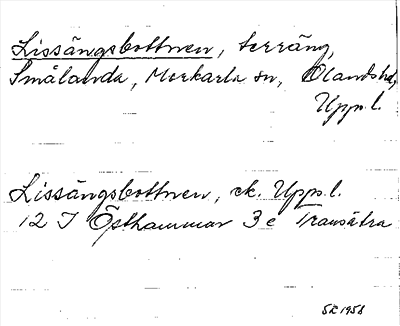 Lissängsbottnen, terräng,
Smålanda, Morkarla sn, Olandshd,
Upps.l.
Lissängsbottnen, ek. Upps.l.
12 I Östhammar 3 e Transätra
SE 1958